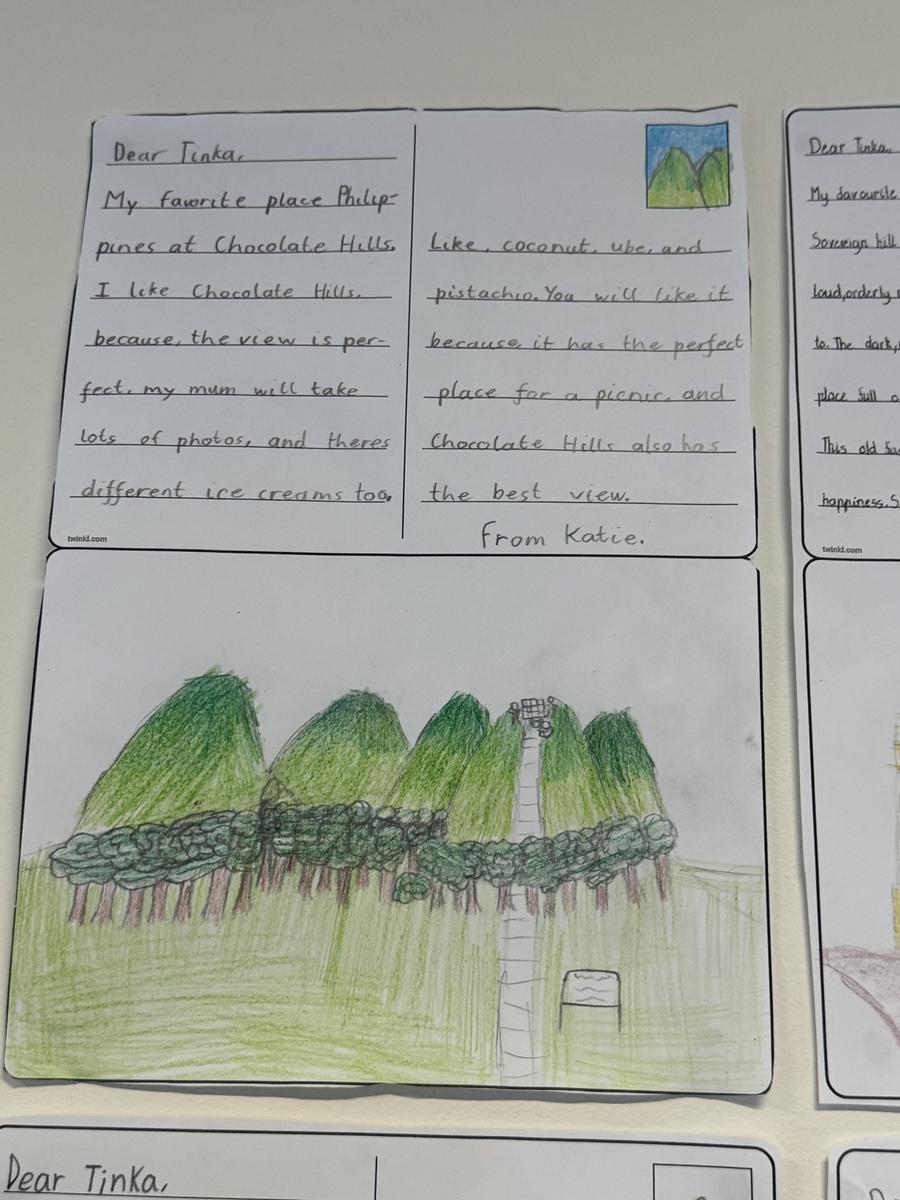 Dear Tinka,
My favorite place Philip-
pines at Chocolate Hills.
I like Chocolate Hills.
because, the view is per-
fect, my mum will take
lots of photos, and theres
different ice creams too,
twinkl.com
Like, coconut, ube, and
pistachio. You will like it
because, it has the perfect
place for a picnic, and
Chocolate Hills also has
the best view.
from Katie.
Dear Tinka,
My favourite
Sovereign hill
loud, orderly
to. The dark,
place full
This old
happiness. S
twinkl.com
Dear Tinka,